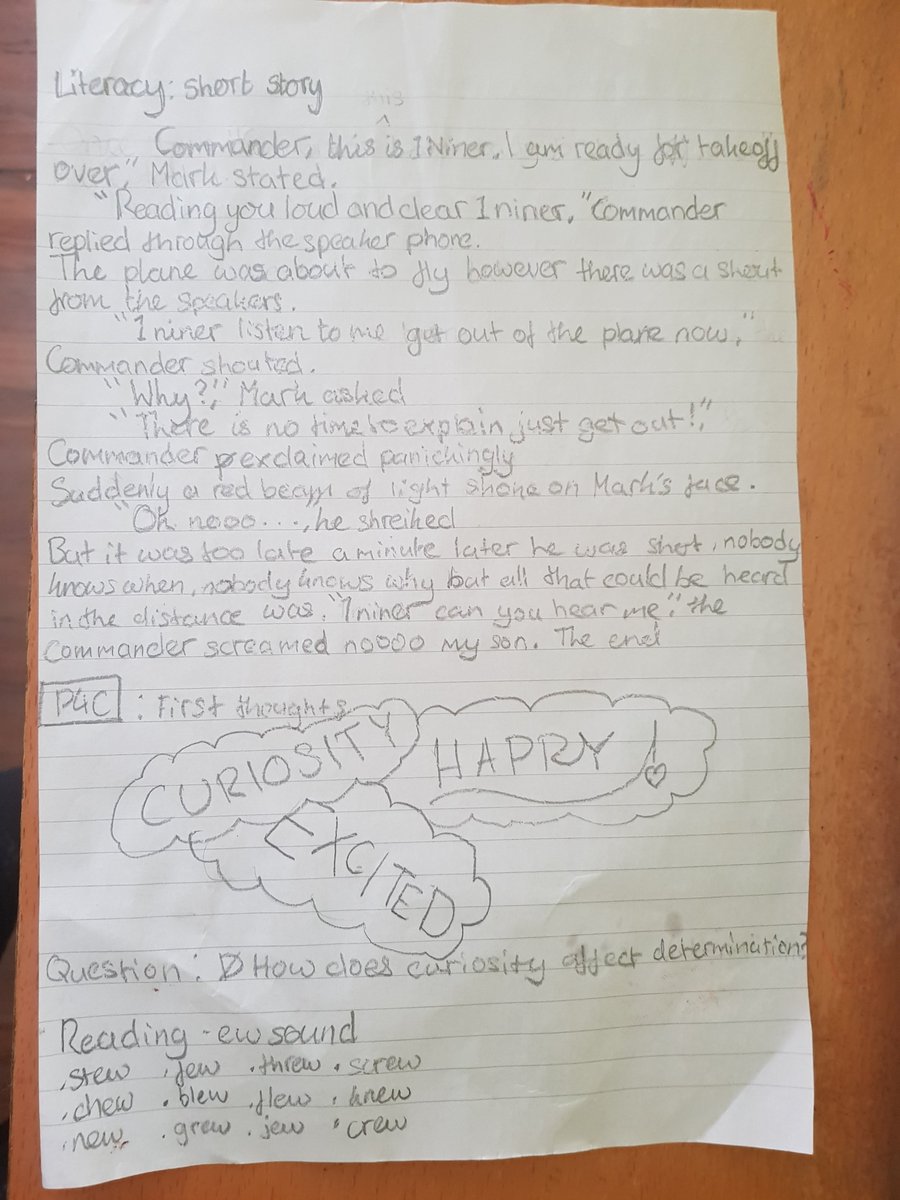 Literacy: short story
Commander, this is 1Niner, I am ready for takeoff
over," Mark stated.
"Reading you loud and clear 1niner," Commander
replied through the speaker phone.
The plane was about to fly however there was a shout
from the speakers.
"1niner listen to me get out of the plane now,"
Commander shouted.
"Why?," Mark asked
"There is no time to explain just get out!,"
Commander exclaimed panickingly
Suddenly a red beam of light shone on Mark's face.
"Oh nooo...., he shreiked
But it was too late a minute later he was shot, nobody
knows when, nobody knows why but all that could be heard
in the distance was. "1niner can you hear me". the
Commander screamed noooo my son. The end
P4C : First thoughts
CURIOSITY HAPPY!
EXCITED
Question: How does curiosity affect determination?
Reading -ew sound
.stew .few .threw .screw
.chew .blew .flew .knew
.new .grew .jew .crew